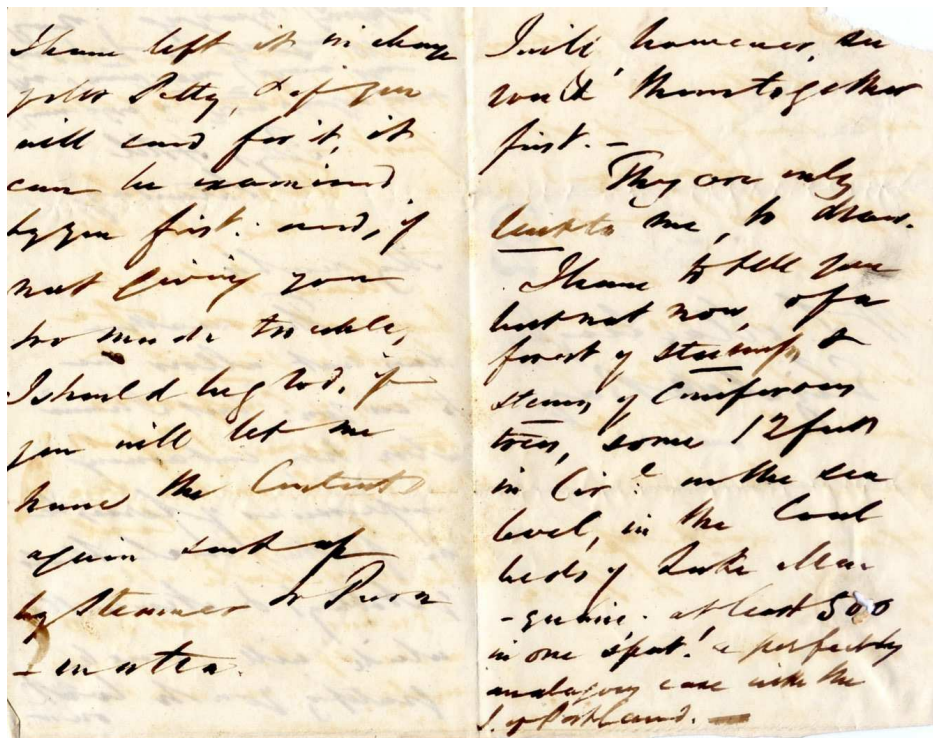 I have left it in charge
of Mr Petty, & if you
will send for it, it
can be examined
by you first. and, if
not giving you
too much trouble,
I should be glad, if
you will let me
have the Contents
again sent up
by Steamer to Parra
-matta.
I will, however, su
them together
first. –
They are only
lent to me, to draw.
I have to tell you
but not now, of a
forest of stumps &
stems of Coniferous
trees, some 12 feet
in Cir.e on the sea
level, in the Coal
beds of Lake Mac
-quarie. at least 500
in one spot! a perfectly
analogous case with the
I. of Portland. —